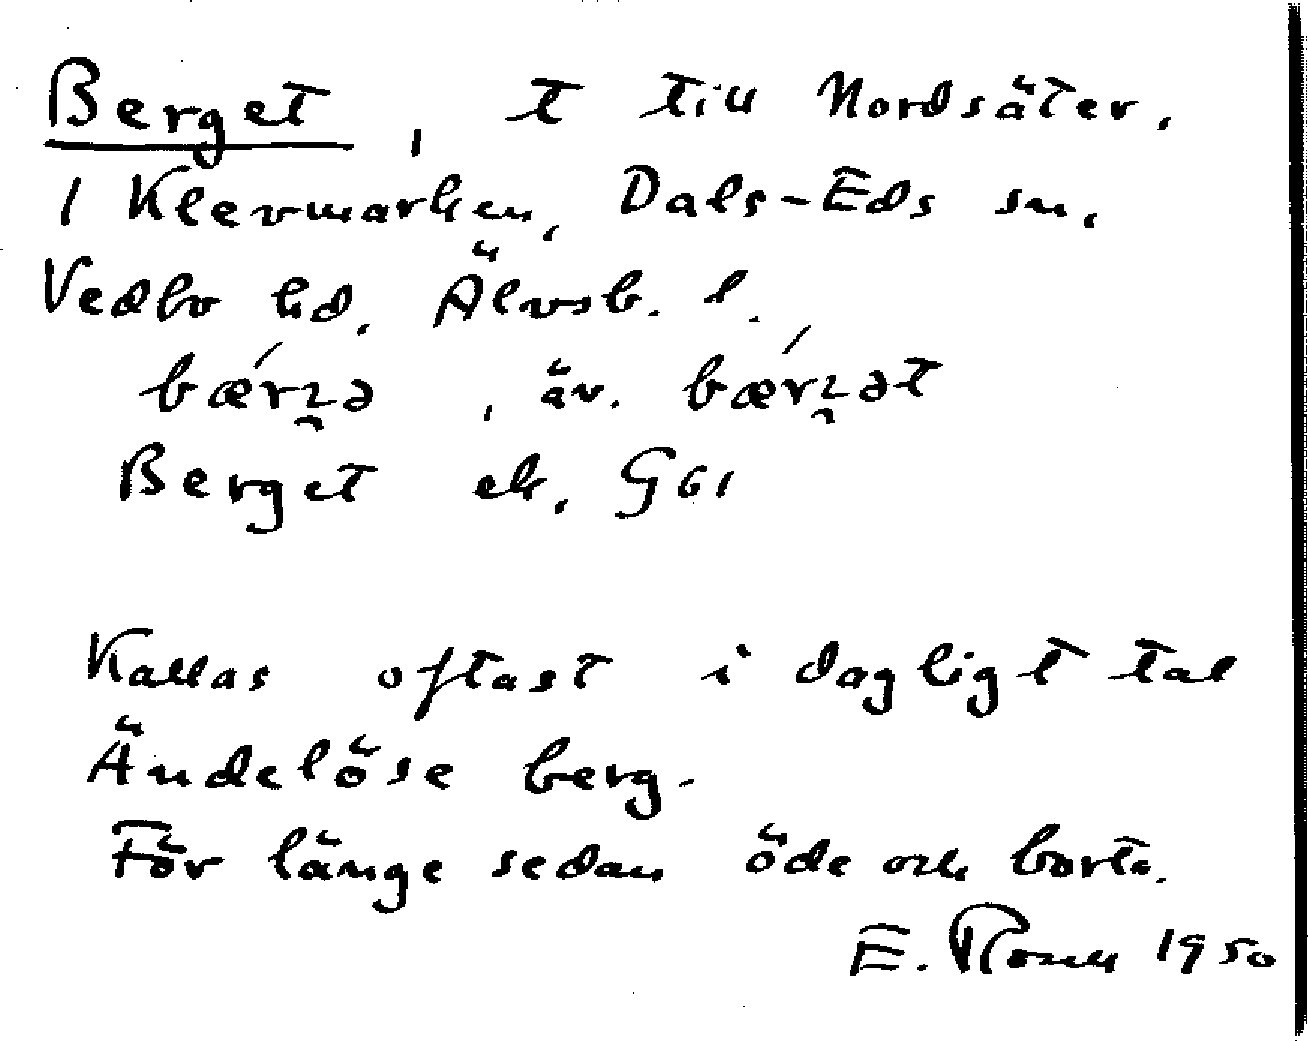 Berget, t till Nordsäter.
1 Klevmarken, Dals-Eds sn.
Vedbo hd. Älvsb. l.
bærʒə, äv. bærʒət
Berget ek. G61
Kallas oftast i dagligt tal
Ändelöse berg.
För länge sedan öde och borta.
E. 1950